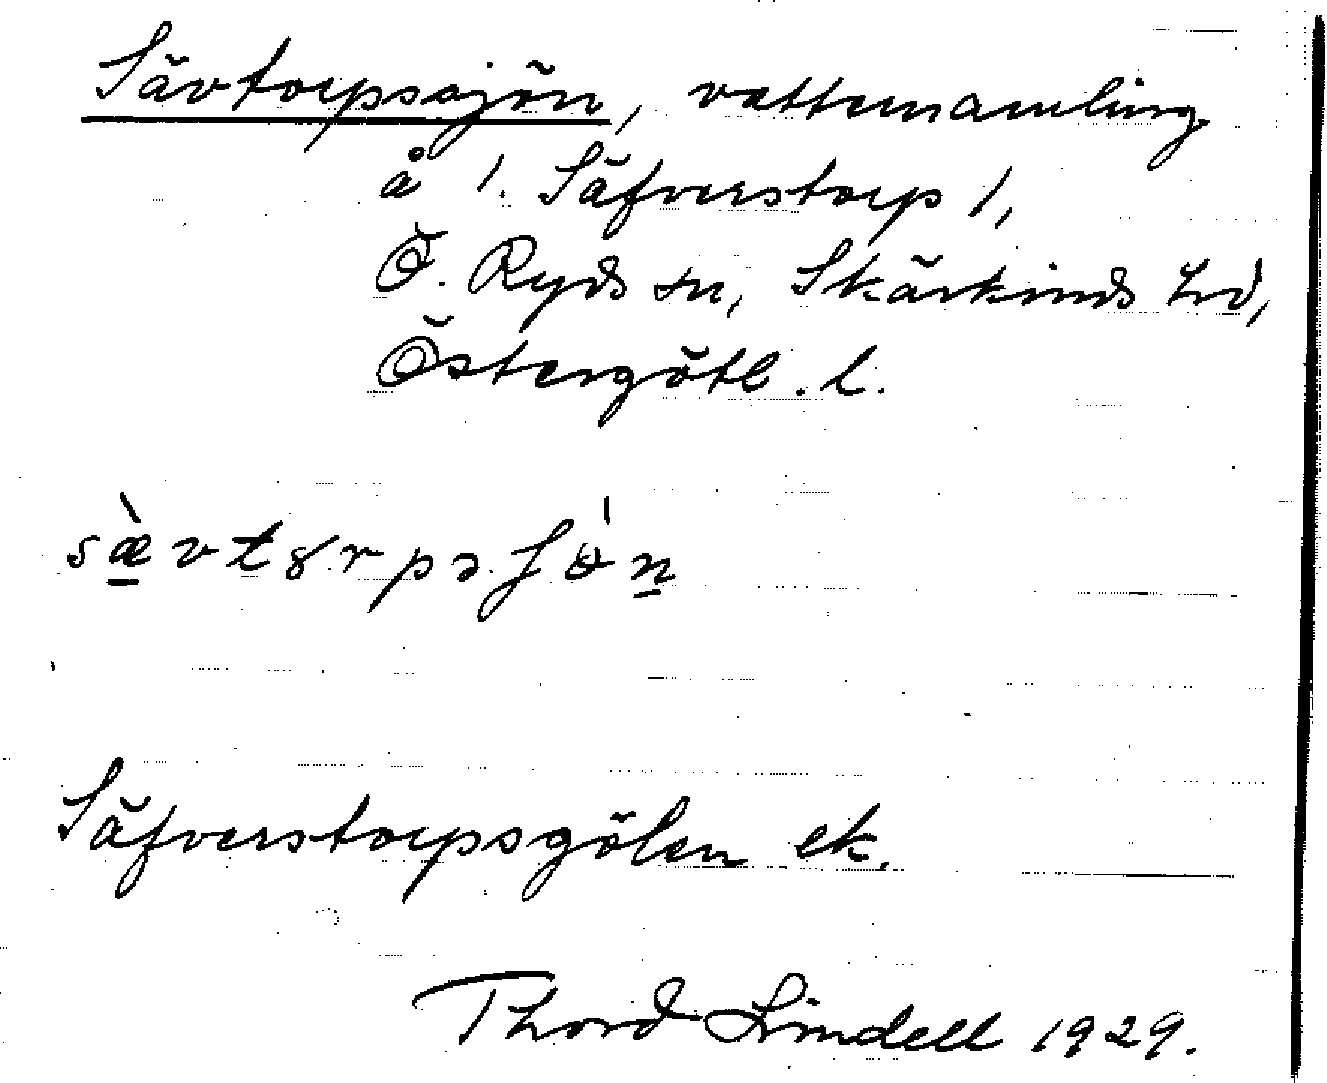 Sävtorpssjön, vattensamling
å 1. Säfverstorp 1,
Ö. Ryds sn, Skärkinds hd,
Östergötl. l.
sæ̀vtɤrpsʃɵ̀n
Säfverstorpsgölen ek.
Thord Lindell 1929.